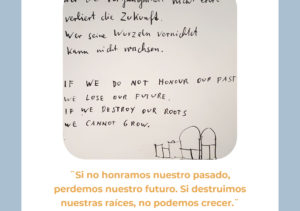 verliert die Zukunft.
Wer seine Wurzeln vernichtet
kann nicht wachsen.
IF WE DO NOT HONOUR OUR PAST
WE LOSE OUR FUTURE.
IF WE DESTROY OUR ROOTS
WE CANNOT GROW.
¨Si no honramos nuestro pasado,
perdemos nuestro futuro. Si destruimos
nuestras raíces, no podemos crecer.¨